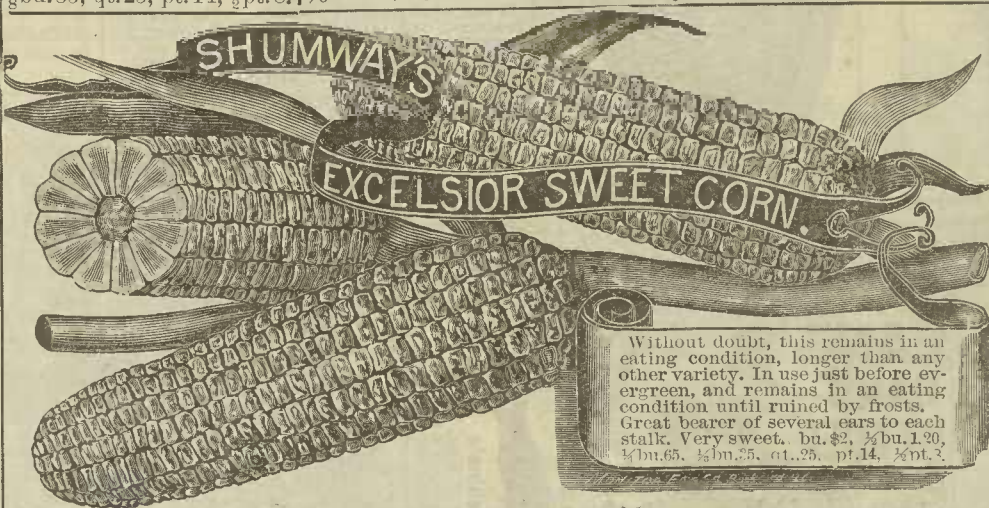 SHUMWAY'S
EXCELSIOR SWEET CORN.
Without doubt, this remains in an
eating condition, longer than any
other variety. In use just before ev-
ergreen, and remains in an eating
condition until ruined by frosts.
Great bearer of several ears to each
stalk. Very sweet. bu. $2, ½bu.1.20,
pt.14,